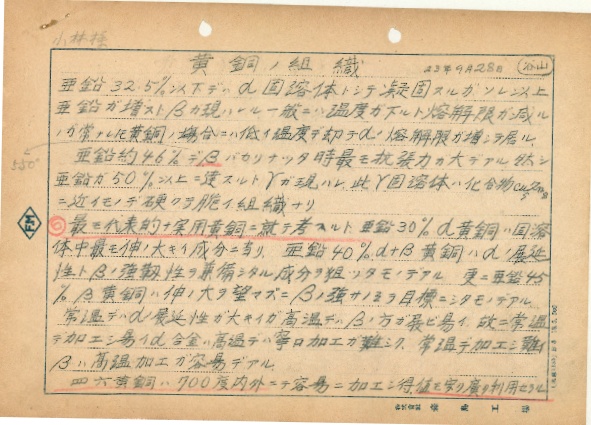 小林様
黄銅ノ組織
23年9月28日
亜鉛32.5%以下デハα固溶体トシテ凝固スルガソレ以上
亜鉛ガ増ストβガ現ハレル一般ニハ温度ガ下ルト熔解限ガ減ル
ノガ常ナルモ黄銅ノ場合ニハ低イ温度デ却テαノ熔解限ガ増シテ居ル.
550°
亜鉛約46%デβバカリナッタ時最モ抗張力ガ大デアル 然シ
亜鉛ガ50%以上ニ達スルトγガ現ハレ.此γ固溶体ハ化合物Cu5Zn8
ニ近イモノデ硬クテ脆イ組織ナリ
最モ代表的ナ実用黄銅ニ就テ考スルト 亜鉛30% α黄銅ハ固溶
体中最モ伸ノ大キイ成分ニ当リ、亜鉛40% α+β黄銅ハαノ展延
性トβノ強靭性ヲ兼備シタル成分ヲ狙ツタモノデアル 更ニ亜鉛45
%β黄銅ハ伸ノ大ヲ望マズニβノ強サノミヲ目標ニシタモノデアル.
常温デハαノ展延性ガ大キイガ高温デハβノ方ガ展ビ易イ,故ニ常温
デ加工シ易イα合金ハ高温デハ寧ロ加工ガ難シク、常温デ加工シ難イ
βハ高温加工ガ容易デアル.
四六黄銅ハ700度内外ニテ容易ニ加工シ得,値モ安ク廣ク利用セラル
FM
株式会社 工場